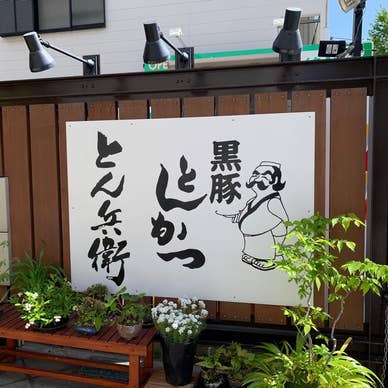 黒豚
とんかつ
とん兵衛
OPE